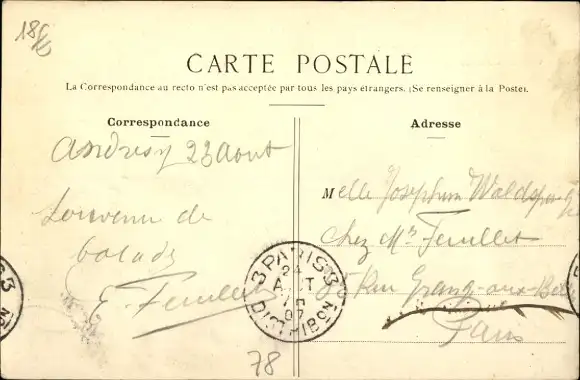 CARTE POSTALE
La Correspondance au recto n'est pas acceptée par tous les pays étrangers. (Se renseigner à la Poste).
Correspondance
Andresy 23 Aout
Souvenir de
balade
E. Feuillet
Adresse
Melle Josephine
chez Mr Feuillet
Rue Grange-aux-Belles
Paris
PARIS
24
AOUT
07
78